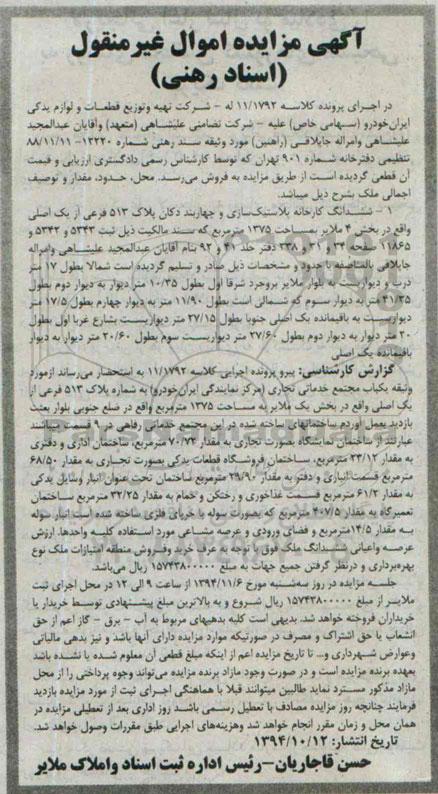 آگهی مزایده اموال غیرمنقول
(اسناد رهنی)
در اجرای پرونده کلاسه ۱۱/۱۷۹۲ له - شرکت تهیه وتوزیع قطعات و لوازم یدکی
ایران‌خودرو (سهامی خاص) علیه - شرکت تضامنی علیشاهی (متعهد) وآقایان عبدالمجید
علیشاهی وامراله جابلاقی (راهنین) مورد وثیقه سند رهنی شماره ۱۳۲۲۰- ۸۸/۱۱/۱۱
تنظیمی دفترخانه شماره ۹۰۱ تهران که توسط کارشناس رسمی دادگستری ارزیابی و قیمت
آن قطعی گردیده است از طریق مزایده به فروش می‌رسد. محل، حدود، مقدار و توصیف
اجمالی ملک بشرح ذیل میباشد.
۱ - ششدانگ کارخانه پلاستیک‌سازی و چهاربند دکان پلاک ۵۱۳ فرعی از یک اصلی
واقع در بخش ۴ ملایر بمساحت ۱۳۷۵ مترمربع که سند مالکیت ذیل ثبت ۵۳۴۳ و ۵۳۴۲ و
۱۱۸۶۵ صفحه ۳۴ و ۳۱ و ۲۳۸ دفتر جلد ۴۱ و ۹۲ بنام آقایان عبدالمجید علیشاهی وامراله
جابلاقی بالمناصفه با حدود و مشخصات ذیل صادر و تسلیم گردیده است شمالا بطول ۱۷ متر
درب و دیواریست به بلوار ملایر بروجرد شرقا اول بطول ۱۰/۳۵ متر دیوار به دیوار دوم بطول
۴۱/۳۵ متر به دیوار سوم که شمالی است بطول ۱۱/۹۰ متر به دیوار چهارم بطول ۱۷/۵ متر
دیواریست به باقیمانده یک اصلی جنوبا بطول ۲۷/۱۵ متر دیواریست بشارع غربا اول بطول
۲۰ متر دیوار به دیوار دوم بطول ۲۷/۶۰ متر دیواریست سوم بطول ۲۰/۶۰ متر دیوار به دیوار
باقیمانده یک اصلی
گزارش کارشناسی: پیرو پرونده اجرایی کلاسه ۱۱/۱۷۹۲ به استحضار می‌رساند ازمورد
وثیقه یکباب مجتمع خدماتی تجاری (مرکز نمایندگی ایران‌خودرو) به شماره پلاک ۵۱۳ فرعی از
یک اصلی واقع در بخش یک ملایر به مساحت ۱۳۷۵ مترمربع واقع در ضلع جنوبی بلوار بعثت
بازدید بعمل آوردم ساختمانهای ساخته شده در این مجتمع خدماتی رفاهی در ۹ قسمت میباشند
عبارتند از ساختمان نمایشگاه بصورت تجاری به مقدار ۷۰/۷۳ مترمربع، ساختمان اداری و دفتری
به مقدار ۲۳/۱۲ مترمربع، ساختمان فروشگاه قطعات یدکی بصورت تجاری به مقدار ۶۸/۵۰
مترمربع قسمت انباری و دفتر به مقدار ۲۹/۹۰ مترمربع ساختمان تحت عنوان انبار وسایل یدکی
به مقدار ۶۱/۲ مترمربع قسمت غذاخوری و رختکن و حمام به مقدار ۳۲/۲۵ مترمربع ساختمان
تعمیرگاه به مقدار ۴۰۷/۵ مترمربع که بصورت سوله با خرپای فلزی ساخته شده است انبار سوله
به مقدار ۱۴/۵مترمربع و فضای ورودی و عرصه مشاعی مورد استفاده کلیه واحدها. ارزش
عرصه واعیانی ششدانگ ملک فوق با توجه به عرف خرید وفروش منطقه امتیازات ملک نوع
بهره‌برداری و درنظر گرفتن جمیع جهات به مبلغ ۱۵۷۴۳۸۰۰۰۰۰ ریال می‌باشد.
جلسه مزایده در روز سه‌شنبه مورخ ۱۳۹۴/۱۱/۶ از ساعت ۹ الی ۱۲ در محل اجرای ثبت
ملایر از مبلغ ۱۵۷۴۳۸۰۰۰۰۰ ریال شروع و به بالاترین مبلغ پیشنهادی توسط خریدار یا
خریداران فروخته خواهد شد. بدیهی است کلیه بدهیهای مربوط به آب - برق - گاز اعم از حق
انشعاب یا حق اشتراک و مصرف در صورتیکه موارد مزایده دارای آنها باشد و نیز بدهی مالیاتی
وعوارض شهرداری و... تا تاریخ مزایده اعم از اینکه مبلغ قطعی آن معلوم شده یا نشده باشد
بعهده برنده مزایده است و در صورت وجود مازاد برنده مزایده می‌تواند وجوه پرداختی را از محل
مازاد مذکور مسترد نماید طالبین میتوانند قبلا با هماهنگی اجرای ثبت از مورد مزایده بازدید
فرمایند چنانچه روز مزایده مصادف با تعطیل رسمی باشد روز اداری بعد از تعطیلی مزایده در
همان محل و زمان مقرر انجام خواهد شد وهزینه‌های اجرایی طبق مقررات وصول خواهد شد.
تاریخ انتشار: ۱۳۹۴/۱۰/۱۲
حسن قاجاریان-رئیس اداره ثبت اسناد واملاک ملایر